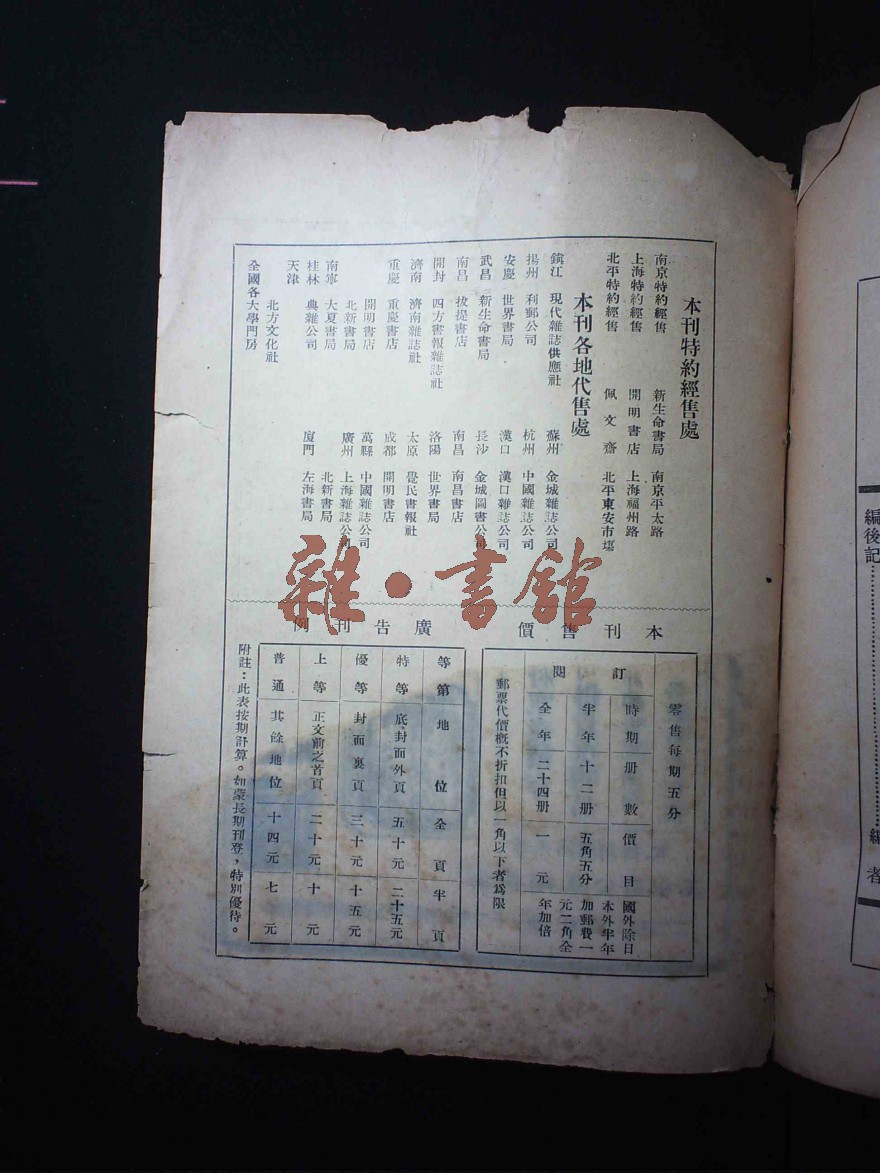 本刊特約經售處
南京特約經售 新生命書局 南京平太路
上海特約經售 開明書店 上海福州路
北平特約經售 佩文齋 北平東安市場
本刊各地代售處
鎮江 現代雜誌供應社
揚州 利郵公司
安慶 世界書局
武昌 新生命書局
南昌 拔提書店
開封 四方書報雜誌社
濟南 濟南雜誌社
重慶 重慶書店
開明書店
北新書局
南寧 大夏書局
桂林 典雜公司
天津
北方文化社
全國各大學門房
蘇州 金城雜誌公司
杭州 中國雜誌公司
漢口 漢口雜誌公司
長沙 金城圖書公司
南昌 南昌書店
洛陽 世界書局
太原 覺民書報社
成都 開明書店
萬縣 中國雜誌公司
廣州 上海雜誌公司
北新書局
廈門 左海書局
雜·書館
本刊售價
零售每期五分
訂閱
時期 冊數 價目 國外除日本外半年加郵費一元二角全年加倍
半年 十二冊 五角五分
全年 二十四冊 一元
郵票代價概不折扣但以一角以下者爲限
廣告刊例
等第 地位 全頁 半頁
特等 底、封面外頁 五十元 二十五元
優等 封面裏頁 三十元 十五元
上等 正文前之首頁 二十元 十元
普通 其餘地位 十四元 七元
附註：此表按期計算。如蒙長期刊登，特別優待。
編後記
編者